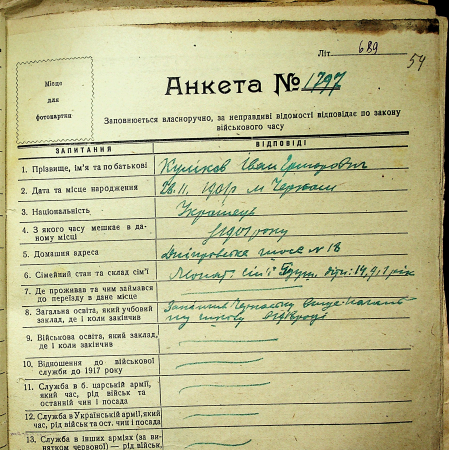 Літ 689
54
Місце
для
фотокартки
Анкета № 1797
Заповнюється власноручно, за неправдиві відомості відповідає по закону
військового часу
ЗАПИТАННЯ ВІДПОВІДІ
1. Прізвище, ім'я та по батькові Куліков Іван Григорович
2. Дата та місце народження 28.II.1901р м
3. Національність Українець
4. З якого часу мешкає в да-
ному місці 1901 року
5. Домашня адреса шосе № 18
6. Сімейний стан та склад сім'ї
7. Де проживав та чим займався
до переїзду в дане місце
8. Загальна освіта, який учбовий
заклад, де і коли закінчив школу
9. Військова освіта, який заклад,
де і коли закінчив
10. Відношення до військової
служби до 1917 року
11. Служба в б. царській армії,
який час, рід військ та
останній чин і посада
12. Служба в Українській армії, який
час, рід військ та ост. чин і посада
13. Служба в інших арміях (за ви-
нятком червоної) — рід військ,